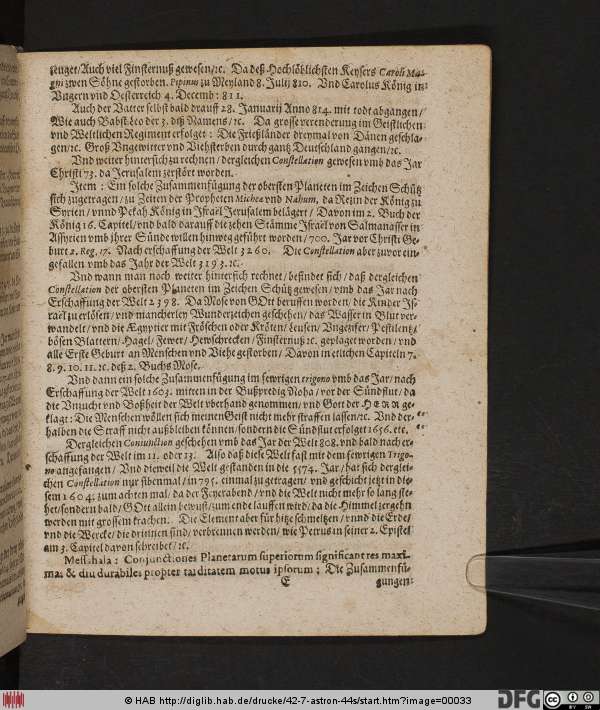 zeuget/ Auch viel Finsternuß gewesen/ ꝛc. Da deß Hochlöblichsten Keysers Caroli Ma-
gni zwen Söhne gestorben. Pepinus zu Meyland 8. Julij 810. Vnd Carolus König in
Vngern vnd Oesterreich 4. Decemb: 811.
Auch der Vatter selbst bald drauff 28. Januarij Anno 814. mit todt abgangen/
Wie auch Babst Leo der 3. deß Namens/ ꝛc. Da grosse verenderung im Geistlichen
vnd Weltlichen Regiment erfolget: Die Frießländer dreymal von Dänen geschla-
gen/ ꝛc. Groß Vngewitter vnd Viehsterben durch gantz Deutschland gangen/ ꝛc.
Vnd weiter hintersich zu rechnen/ dergleichen Constellation gewesen vmb das Jar
Christi 73. da Jerusalem zerstört worden.
Item: Ein solche Zusammenfügung der obersten Planeten im Zeichen Schütz
sich zugetragen/ zu Zeiten der Propheten Michea vnd Nahum, da Rezin der König zu
Syrien/ vnnd Pekah König in Israel Jerusalem belägert/ Davon im 2. Buch der
König 16. Capitel/ vnd bald darauff die zehen Stämme Israel von Salmanasser in
Assyrien vmb jhrer Sünde willen hinweg geführt worden/ 700. Jar vor Christi Ge-
burt 2. Reg. 17. Nach erschaffung der Welt 3260. Die Constellation aber zuvor ein-
gefallen vmb das Jahr der Welt 3193. ꝛc.
Vnd wann man noch weiter hintersich rechnet/ befindet sich/ daß dergleichen
Constellation der obersten Planeten im Zeichen Schütz gewesen/ vmb das Jar nach
Erschaffung der Welt 2398. Da Mose von GOtt beruffen worden/ die Kinder Is-
rael zu erlösen/ vnd mancherley Wunderzeichen geschehen/ das Wasser in Blut ver-
wandelt/ vnd die Aegyptier mit Fröschen oder Kröten/ Leusen/ Vngezifer/ Pestilentz/
bösen Blattern/ Hagel/ Fewer/ Hewschrecken/ Finsternuß ꝛc. geplaget worden/ vnd
alle Erste Geburt an Menschen vnd Viehe gestorben/ Davon in etlichen Capiteln 7.
8. 9. 10. 11. ꝛc. deß 2. Buchs Mose.
Vnd dann ein solche Zusammenfügung im fewrigen trigono vmb das Jar/ nach
Erschaffung der Welt 1603. mitten in der Bußpredig Noha/ vor der Sündflut/ da
die Vnzucht vnd Boßheit der Welt vberhand genommen/ vnd Gott der HERR ge-
klagt: Die Menschen wöllen sich meinen Geist nicht mehr straffen lassen/ ꝛc. Vnd der-
halben die Straff nicht außbleiben können/ sondern die Sündflut erfolget 1656. etc.
Dergleichen Coniunction geschehen vmb das Jar der Welt 808. vnd bald nach er-
schaffung der Welt im 11. oder 13. Also daß diese Welt fast mit dem fewrigen Trigo-
no angefangen/ Vnd dieweil die Welt gestanden in die 5574. Jar/ hat sich derglei-
chen Constellation nur sibenmal/ in 795. einmal zu getragen/ vnd geschicht jetzt in die-
sem 1604. zum achten mal/ da der Feyerabend/ vnd die Welt nicht mehr so lang ste-
het/ sondern bald/ GOtt allein bewust/ zum ende lauffen wird/ da die Himmel zergehn
werden mit grossem krachen. Die Element aber für hitze schmeltzen/ vnnd die Erde/
vnd die Wercke/ die drinnen sind/ verbrennen werden/ wie Petrus in seiner 2. Epistel
am 3. Capitel davon schreibet/ ꝛc.
Messahala: Conjunctiones Planetarum superiorum significant res maxi-
mas & diu durabiles propter tarditatem motus ipsorum: Die Zusammenfü-
E gungen
© HAB http://diglib.hab.de/drucke/42-7-astron-44s/start.htm?image=00033
DFG
CC BY SA